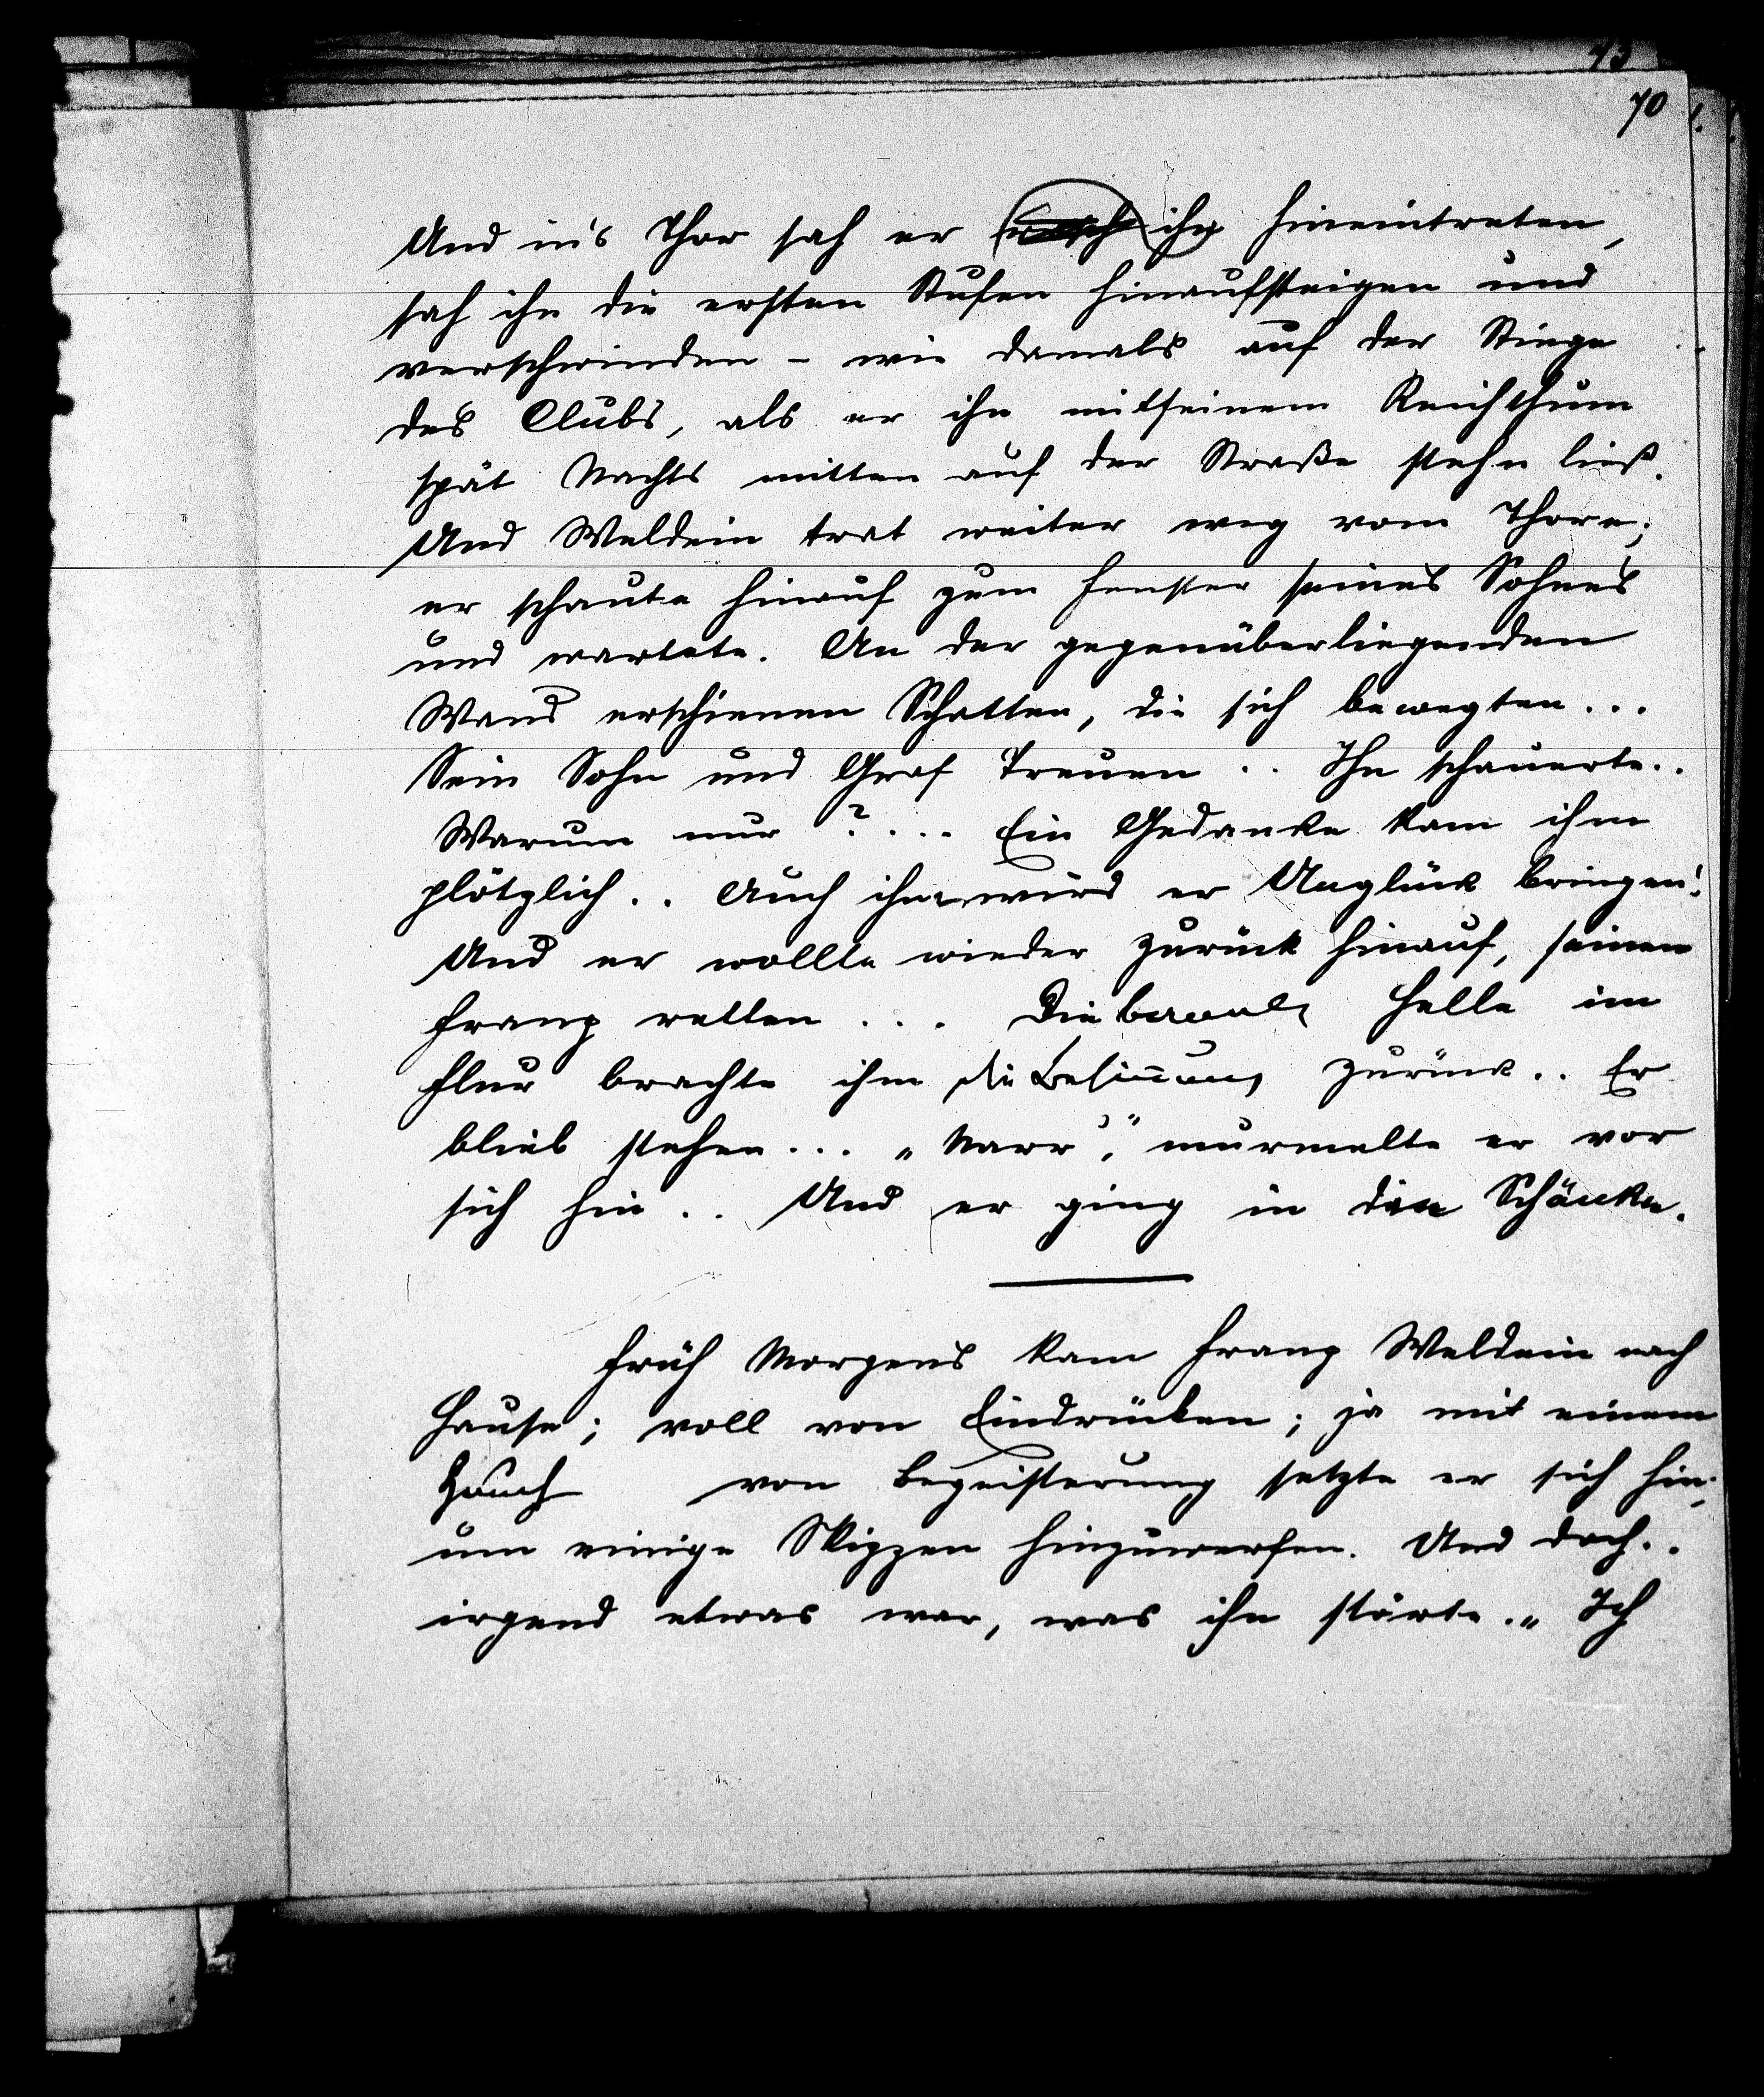 70
Und in's Thor sah er ihn hineintreten,
sah ihn die ersten Stufen hinaufsteigen und
verschwinden – wie damals auf der Stiege
des Clubs, als er ihn mit seinem Reichthum
spät Nachts mitten auf der Straße stehn ließ.
Und Weldein trat weiter weg vom Thore;
er schaute hinauf zum Fenster seines Sohnes
und wartete. An der gegenüberliegenden
Wand erschienen Schatten, die sich bewegten...
Sein Sohn und Graf Treuen .. Ihn schauerte..
Warum nur ?... Ein Gedanke kam ihm
plötzlich.. Auch ihm wird er Unglück bringen!
Und er wollte wieder zurück hinauf, seinen
Franz retten ... Die Helle im
Flur brachte ihm die Besinnung zurück.. Er
blieb stehen... „Narr", murmelte er vor
sich hin .. Und er ging in die Schänke.
Früh Morgens kam Franz Weldein nach
Hause; voll von Eindrücken; ja mit einem
Hauch von Begeisterung setzte er sich hin,
um einige Skizzen hinzuwerfen. Und doch..
irgend etwas war, was ihn störte. „Ich